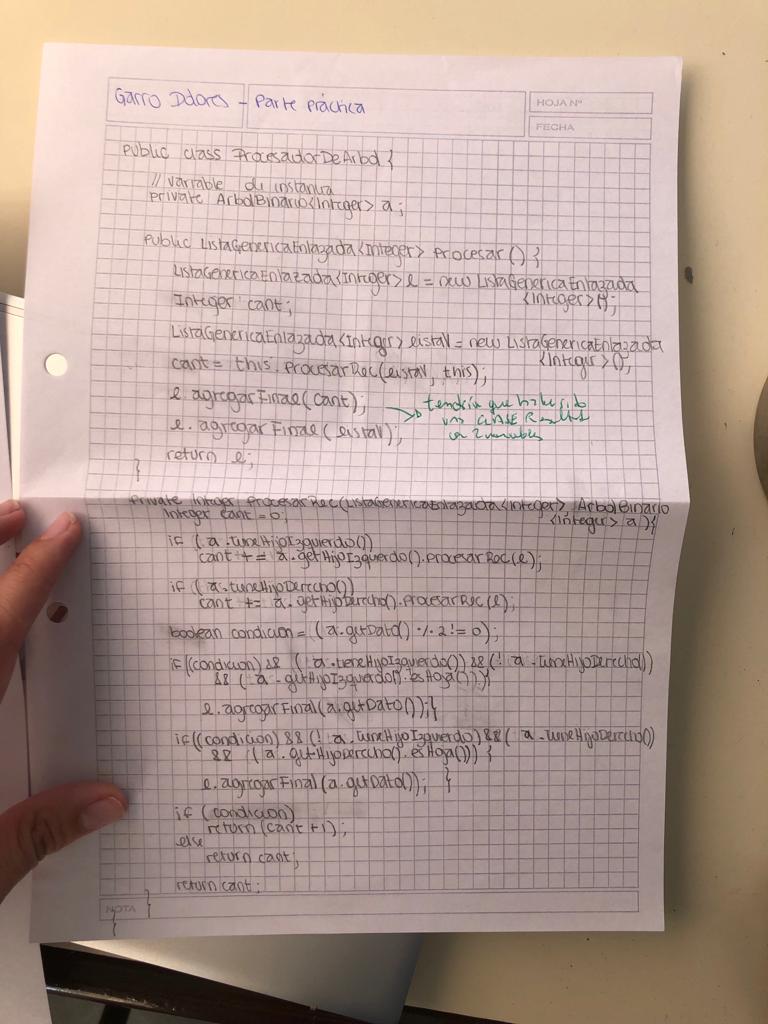 Garro Dolores - Parte Práctica
HOJA Nº
FECHA
public class ProcesadorDeArbol {
// variable de instancia
private ArbolBinario<Integer> a;
public ListaGenericaEnlazada<Integer> procesar() {
ListaGenericaEnlazada<Integer> l = new ListaGenericaEnlazada
<Integer>();
Integer cant;
ListaGenericaEnlazada<Integer> listaV = new ListaGenericaEnlazada
<Integer>();
cant = this.procesarRec(listaV, this);
l.agregarFinal(cant);
l.agregarFinal(listaV);
tendría que haber sido
una CLASE Result
con 2 variables
return l;
}
private Integer procesarRec(ListaGenericaEnlazada<Integer>, ArbolBinario
<Integer> a){
Integer cant = 0;
if (a.tieneHijoIzquierdo())
cant += a.getHijoIzquerdo().procesarRec(l);
if (a.tieneHijoDerecho())
cant += a.getHijoDerecho().procesarRec(l);
boolean condicion = (a.getDato() % 2 != 0);
if((condicion) && ( a.tieneHijoIzquierdo()) && (! a.tieneHijoDerecho())
&& ( a.getHijoIzquierdo().esHoja())){
l.agregarFinal(a.getDato());}
if((condicion) && (! a.tieneHijoIzquierdo) && ( a.tieneHijoDerecho()
&& (a.getHijoDerecho().esHoja())) {
l.agregarFinal(a.getDato()); }
if (condicion)
return (cant +1);
else
return cant;
return cant;
}
NOTA
}